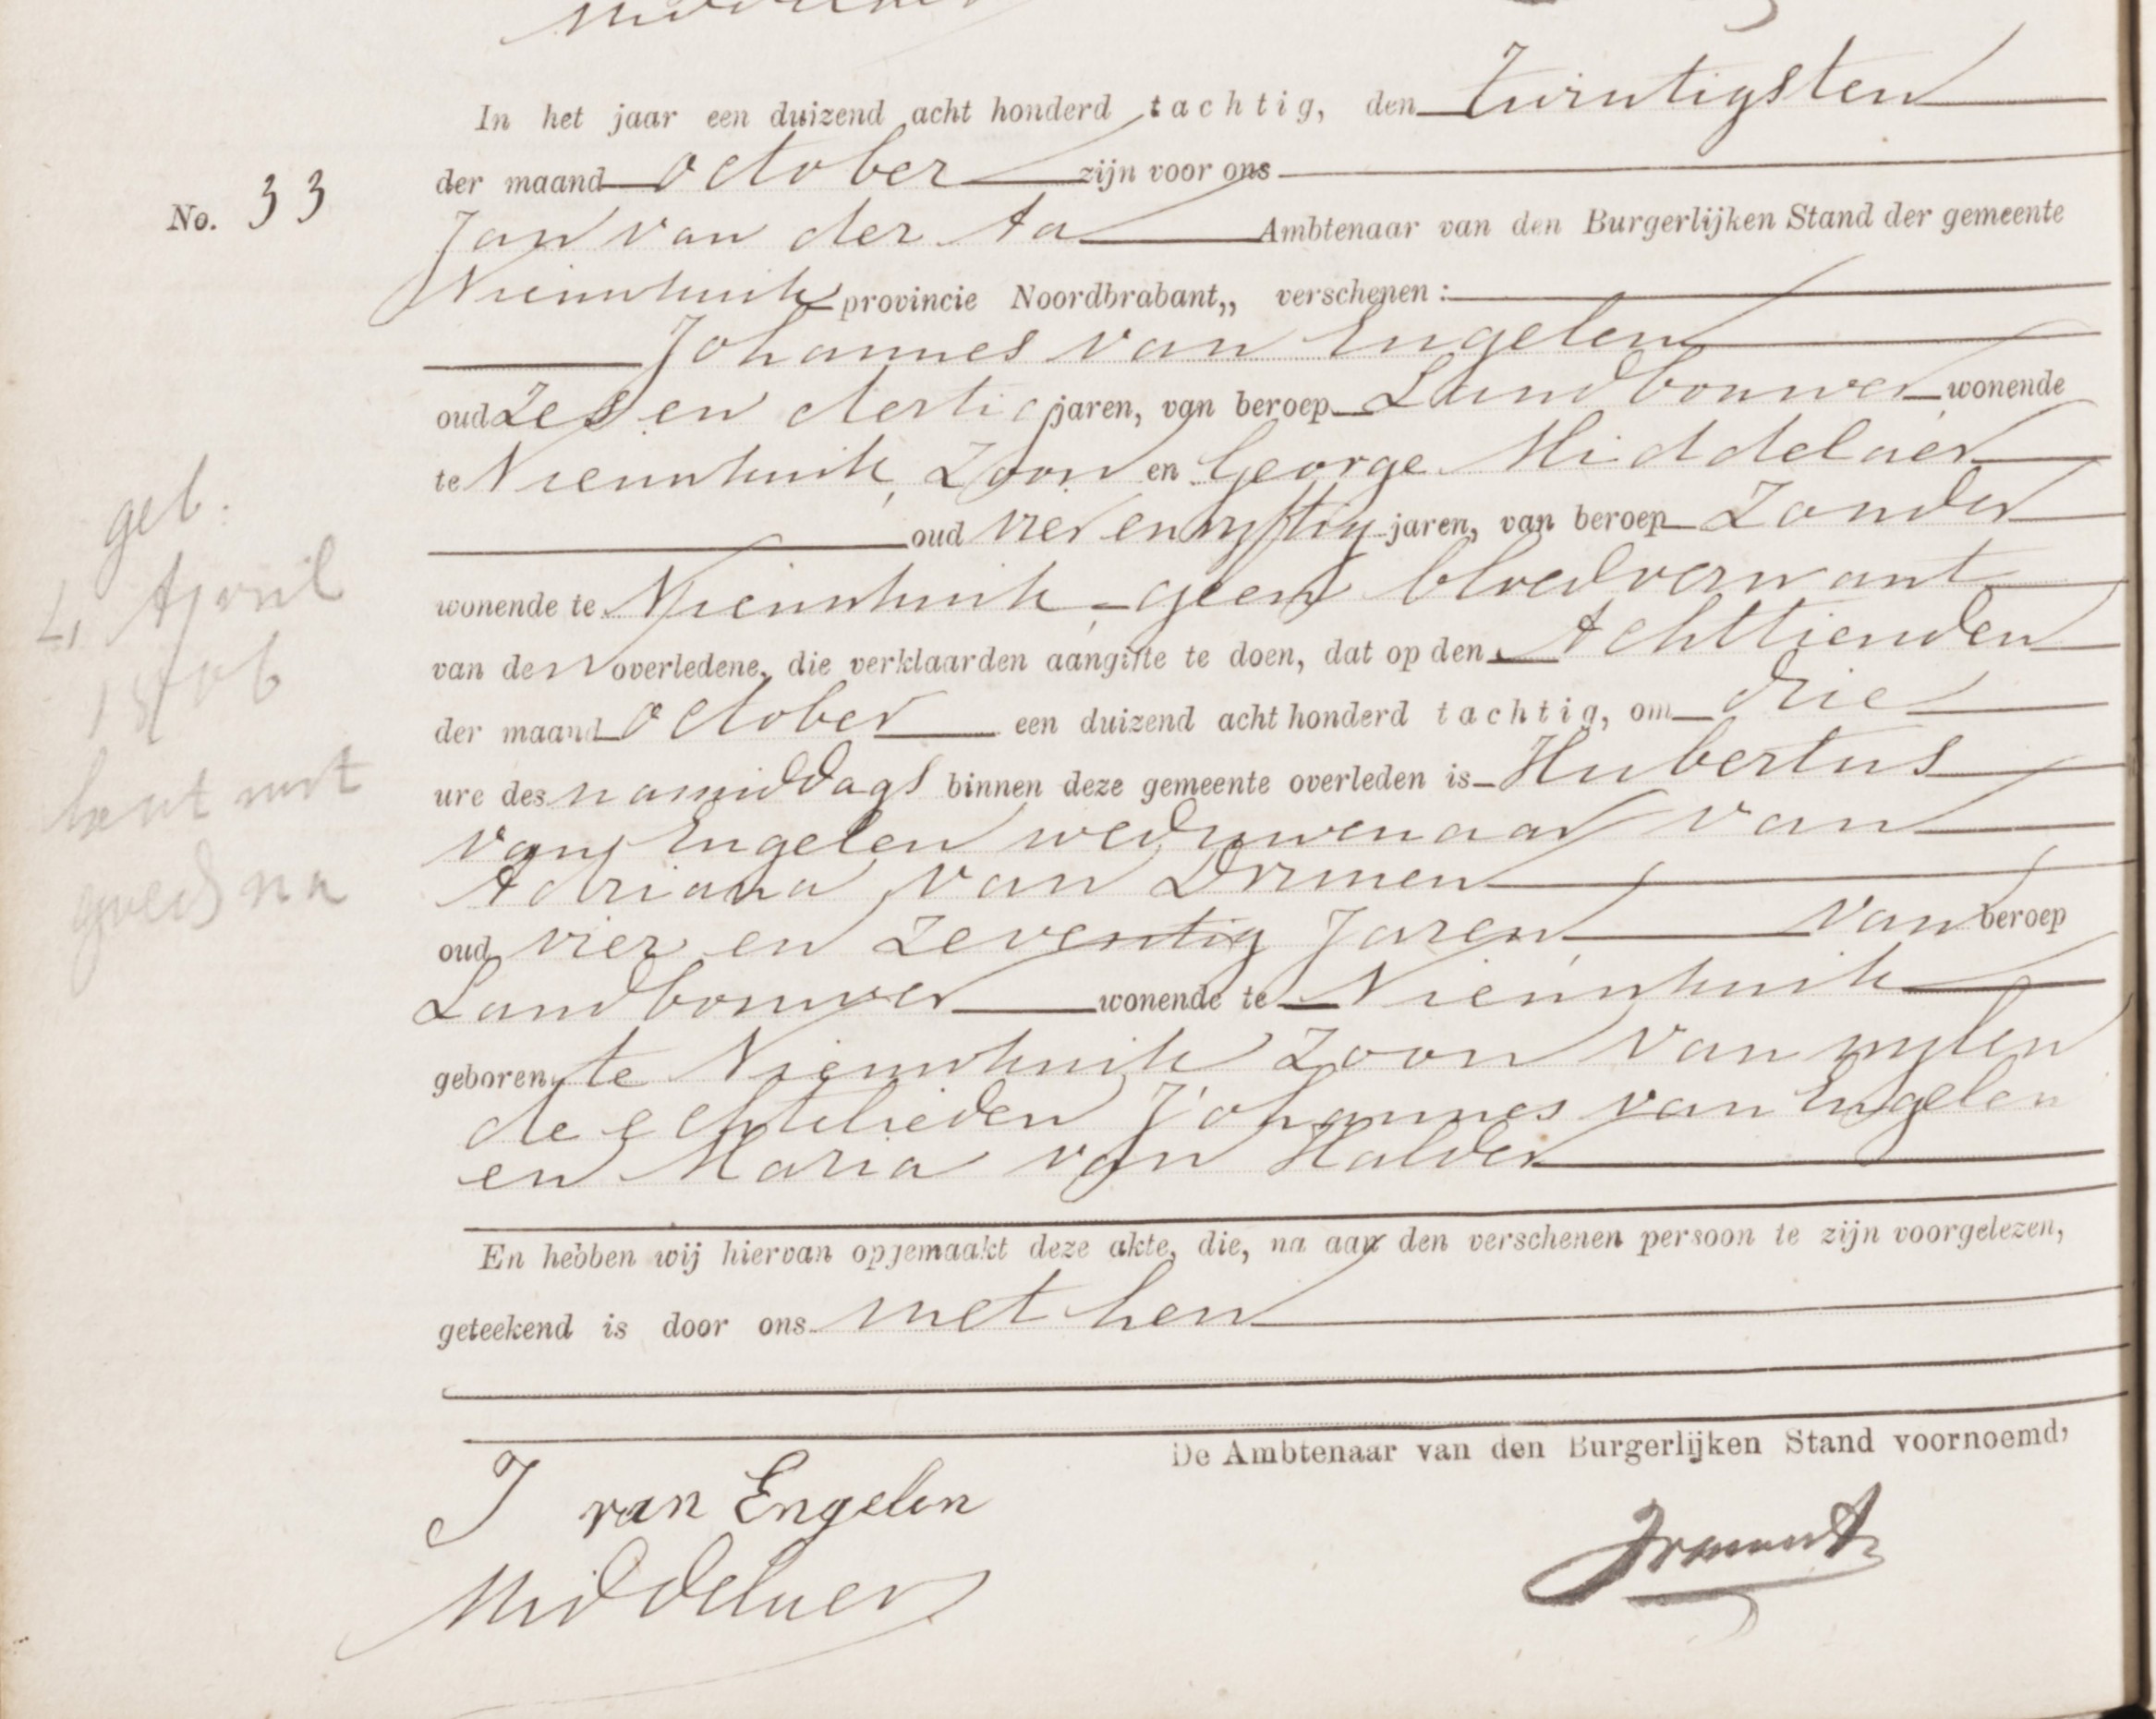 In het jaar een duizend acht honderd tachtig, den twintigsten
der maand October zijn voor ons
No. 33
Jan van der Aa Ambtenaar van den Burgerlijken Stand der gemeente
Nieuwkuik provincie Noordbrabant,, verschenen:
Johannes van Engelen
oud zes en dertig jaren, van beroep Landbouwer wonende
te Nieuwkuik, Zoon en George Middelaer
oud vier en vyftig jaren, van beroep Zonder
wonende te Nieuwkuik, geen bloedverwant
van den overledene, die verklaarden aangifte te doen, dat op den Achttienden
der maand October een duizend acht honderd tachtig, om drie
ure des namiddags binnen deze gemeente overleden is Hubertus
van Engelen weduwenaar van
Adriana van Drunen
oud vier en zeventig Jaren van beroep
Landbouwer wonende te Nieuwkuik
geboren te Nieuwkuik Zoon van wylen
de echtelieden Johannes van Engelen
en Maria van Halder
En hebben wij hiervan opgemaakt deze akte, die, na aan den verschenen persoon te zijn voorgelezen,
geteekend is door ons met hen
De Ambtenaar van den Burgerlijken Stand voornoemd,
J van Engelen
Middelaer
geb.
4 April
1806
goed na